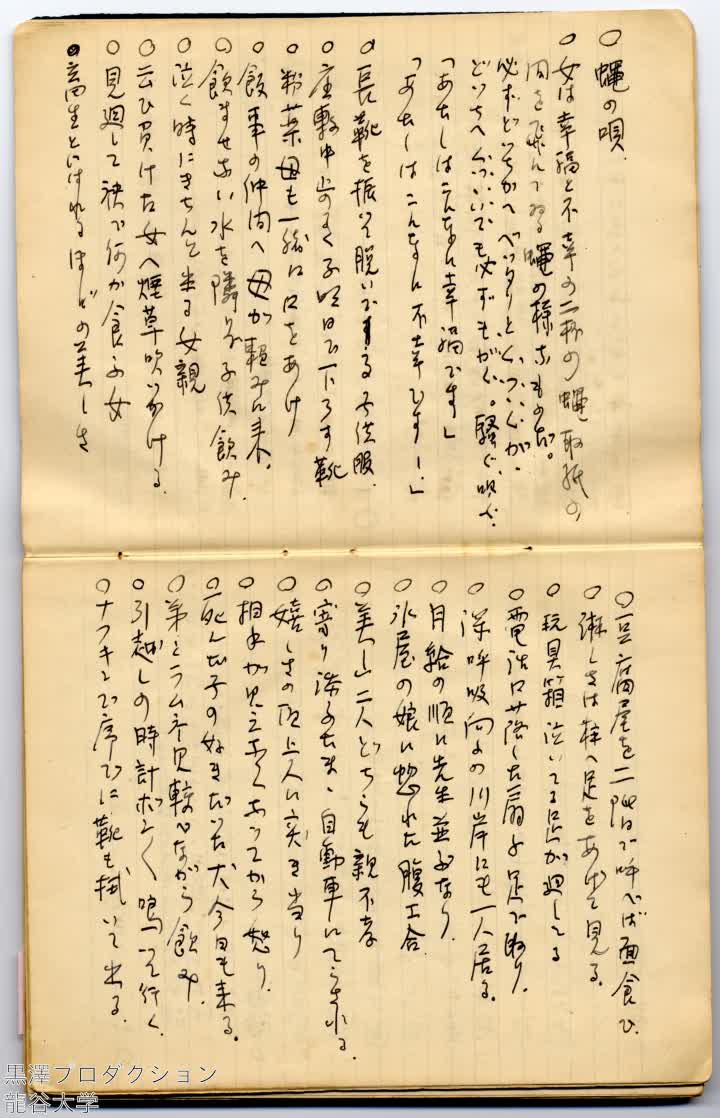 ○ 蠅の唄.
○ 女は幸福と不幸の二枚の蠅取紙の
間を飛んでゐる蠅の様なものだ。
必ずどちらかへべったりとくっつくが、
どちらへくっついても必ずもがく。騒ぐ、唄ふ.
「あたしはこんなに幸福です」
「あたしはこんなに不幸です！」
○ 長靴を振って脱いでゐる子供服.
○ 座敷中 子 明日 下ろす靴
○ 粉薬母も一緒に口をあけ
○ 飯事の仲間へ母が頼みに来.
○ 飲ませない水を隣りで子供飲み.
○ 泣く時にきちんと坐る女親
○ 云ひ負けた女へ煙草吹っかける.
○ 見廻して袂で何か食ふ女
○ 高生といはれるほどの美しさ
○ 豆腐屋を二階で呼べば面食ひ
○ 淋しさは柱へ足をあげて見る.
○ 玩具箱泣いてる足が廻してる
○ 電話口サ落した扇子足で取り.
○ 深呼吸向ふの川岸にも一人居る.
○ 月給の順に先生並ぶなり.
○ 氷屋の娘に惚れた腹工合.
○ 美しい二人どちらも親不孝
○ 寄り添ふたまゝ自動車にてらされる.
○ 嬉しさの頂上人に突き当り
○ 相手が見えなくなってから怒り.
○ 死んだ子のなきがら 犬今日も来る.
○ 弟とラムネ見較べながら飲み.
○ 引越しの時計ボンボン鳴って行く.
○ ナフキンで序でに靴も拭いて出る.
黒澤プロダクション
龍谷大学